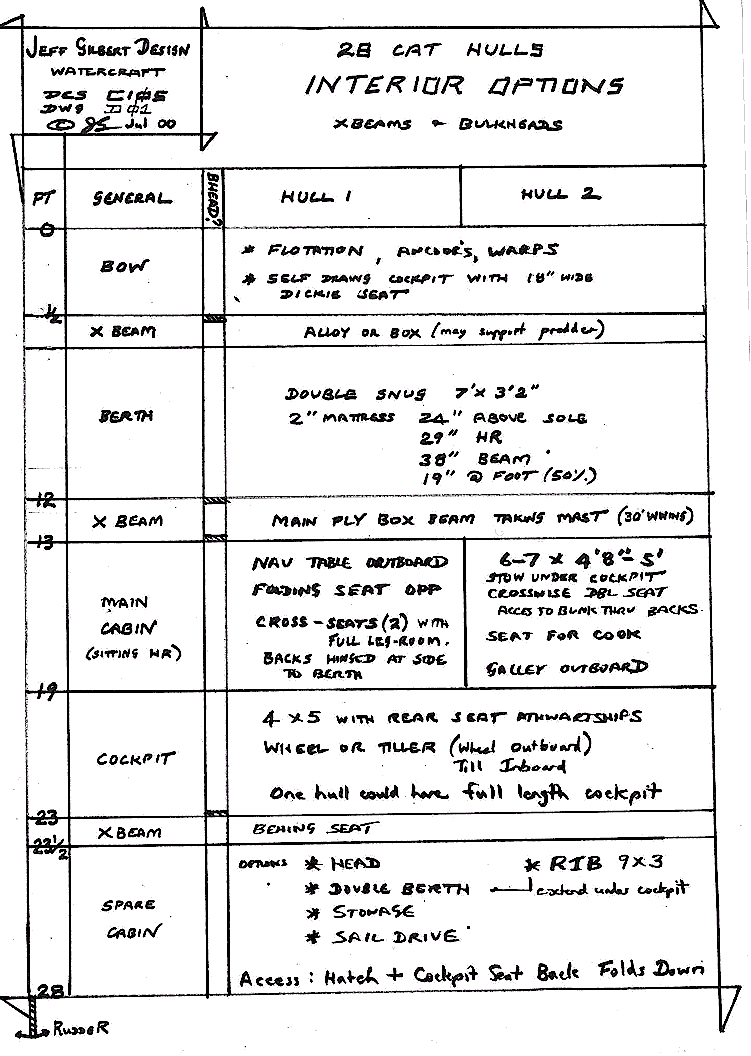 JEFF GILBERT DESIGN
WATERCRAFT
DES C105
DWG D01
© JG Jul 00
28 CAT HULLS
INTERIOR OPTIONS
XBEAMS & BULKHEADS
PT
GENERAL
BHEAD?
HULL 1
HULL 2
0
BOW
* FLOTATION, ANCHORS, WARPS
* SELF DRAWING COCKPIT WITH 18" WIDE
DICKIE SEAT
X BEAM
ALLOY OR BOX (may support prodder)
BERTH
DOUBLE SNUG 7'x 3'2"
2" MATTRESS 24" ABOVE SOLE
29" HR
38" BEAM
19" @ FOOT (50%)
12
X BEAM
MAIN PLY BOX BEAM TAKING MAST (30' WHING)
13
MAIN
CABIN
(SITTING HR)
NAV TABLE OUTBOARD
FOLDING SEAT OPP
CROSS-SEATS (2) WITH
FULL LEG-ROOM.
BACKS HINGED AT SIDE
TO BERTH
6-7 x 4'8"- 5'
STOW UNDER COCKPIT
CROSSWISE DBL SEAT
ACCES TO BUNK THRU BACKS.
SEAT FOR COOK
GALLEY OUTBOARD
19
COCKPIT
4 x 5 WITH REAR SEAT ATHWARTSHIPS
WHEEL OR TILLER (Wheel Outboard)
Till Inboard
One hull could have full length cockpit
23
X BEAM
BEHING SEAT
23 1/2
SPARE
CABIN
OPTIONS * HEAD
* RIB 9x3
* DOUBLE BERTH extend under cockpit
* STOWAGE
* SAIL DRIVE
Access: Hatch + Cockpit Seat Back Folds Down
28
RUDDER